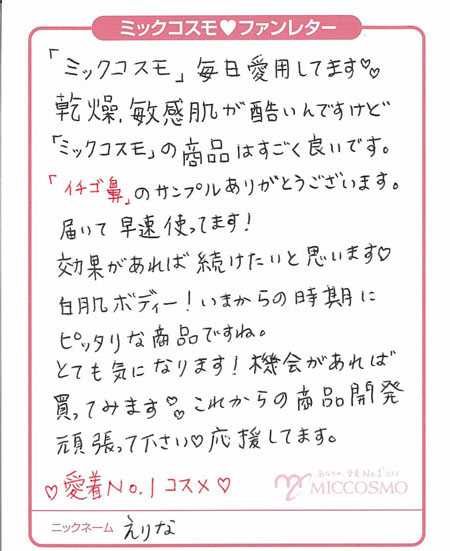 ミックコスモ♥ファンレター
「ミックコスモ」毎日愛用してます♡♡
乾燥、敏感肌が酷いんですけど
「ミックコスモ」の商品はすごく良いです。
「イチゴ鼻」のサンプルありがとうございます。
届いて早速使ってます!
効果があれば続けたいと思います♡
白肌ボディー!いまからの時期に
ピッタリな商品ですね。
とても気になります!機会があれば
買ってみます♡♡これからの商品開発
頑張って下さい♡応援してます。
♡愛着No.1コスメ♡
あなたの、愛着No.1コスメ
MICCOSMO
ニックネーム えりな